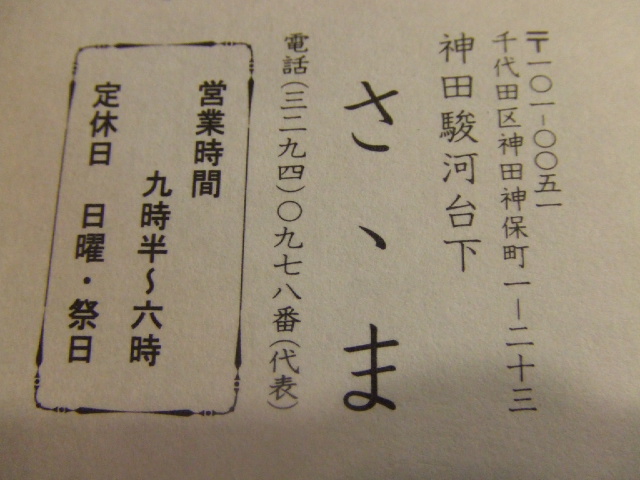 〒一〇一-〇〇五一
千代田区神田神保町一ー二十三
神田駿河台下
さゝま
電話(三二九四)〇九七八番(代表)
営業時間
九時半〜六時
定休日 日曜・祭日